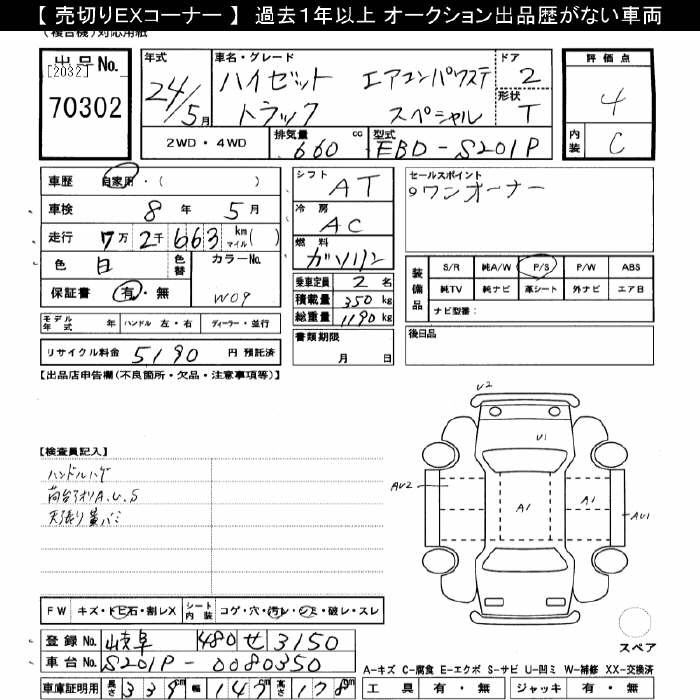 【 売切りEXコーナー 】 過去1年以上 オークション出品歴がない車両
(複合機)対応用紙
出品No.
[2032]
70302
年式
24/5月
車名・グレード
ハイゼット エアコンパワステ
トラック スペシャル
ドア
2
形状
T
評価点
4
内装
C
2WD・4WD
排気量 660 cc
型式 EBD-S201P
車歴 自家用・( )
車検 8年 5月
走行 7万 2千 663 km マイル( )
色 白 色替 カラーNo. W09
保証書 有・無
シフト AT
冷房 AC
燃料 ガソリン
乗車定員 2 名
積載量 350 kg
総重量 1190 kg
書類期限
月 日
セールスポイント
ワンオーナー
装備品
S/R 純A/W P/S P/W ABS
純TV 純ナビ 革シート 外ナビ エアB
ナビ型番:
後日品
モデル年式 年 ハンドル 左・右 ディーラー・並行
リサイクル料金 5190 円 預託済
【出品店申告欄(不良箇所・欠品・注意事項等)】
【検査員記入】
ハンドルハゲ
荷台アオリA.U.S
U2
U1
AU2
A1
A1
AU1
スペア
FW キズ・トビ石・割レX シート内装 コゲ・穴・汚レ・シミ・破レ・スレ
登録No. 岐阜 480 せ 3150
車台No. S201P-0080350
車庫証明用 長さ 339cm 幅 147cm 高さ 178cm
A-キズ C-腐食 E-エクボ S-サビ U-凹ミ W-補修 XX-交換済
工具 有・無 ジャッキ 有・無